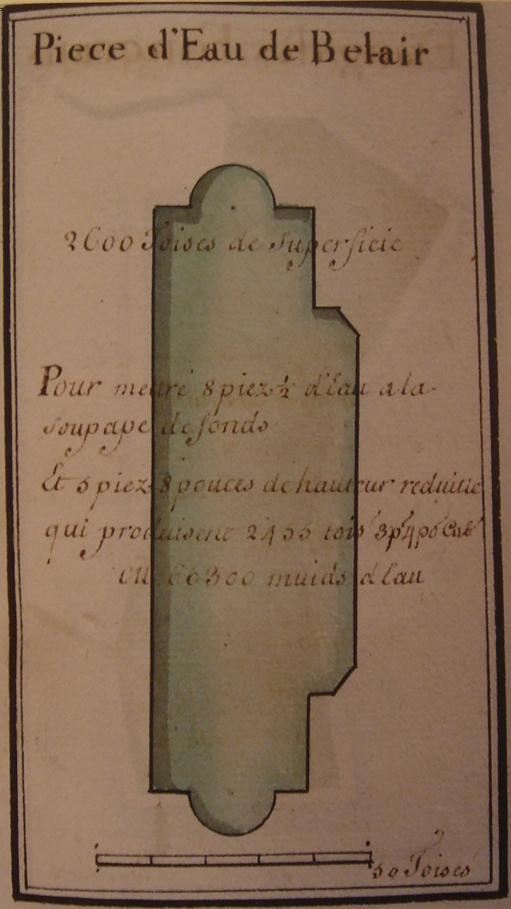 Piece d'Eau de Bel-air
2600 Toises de Superficie
Pour mettre 8 piez ½ d'Eau a la
soupape de fonds
Et 5 piez 8 pouces de hauteur reduitte
qui produisent 2455 tois 3p 4po Cub
ou 66300 muids d'Eau
50 Toises